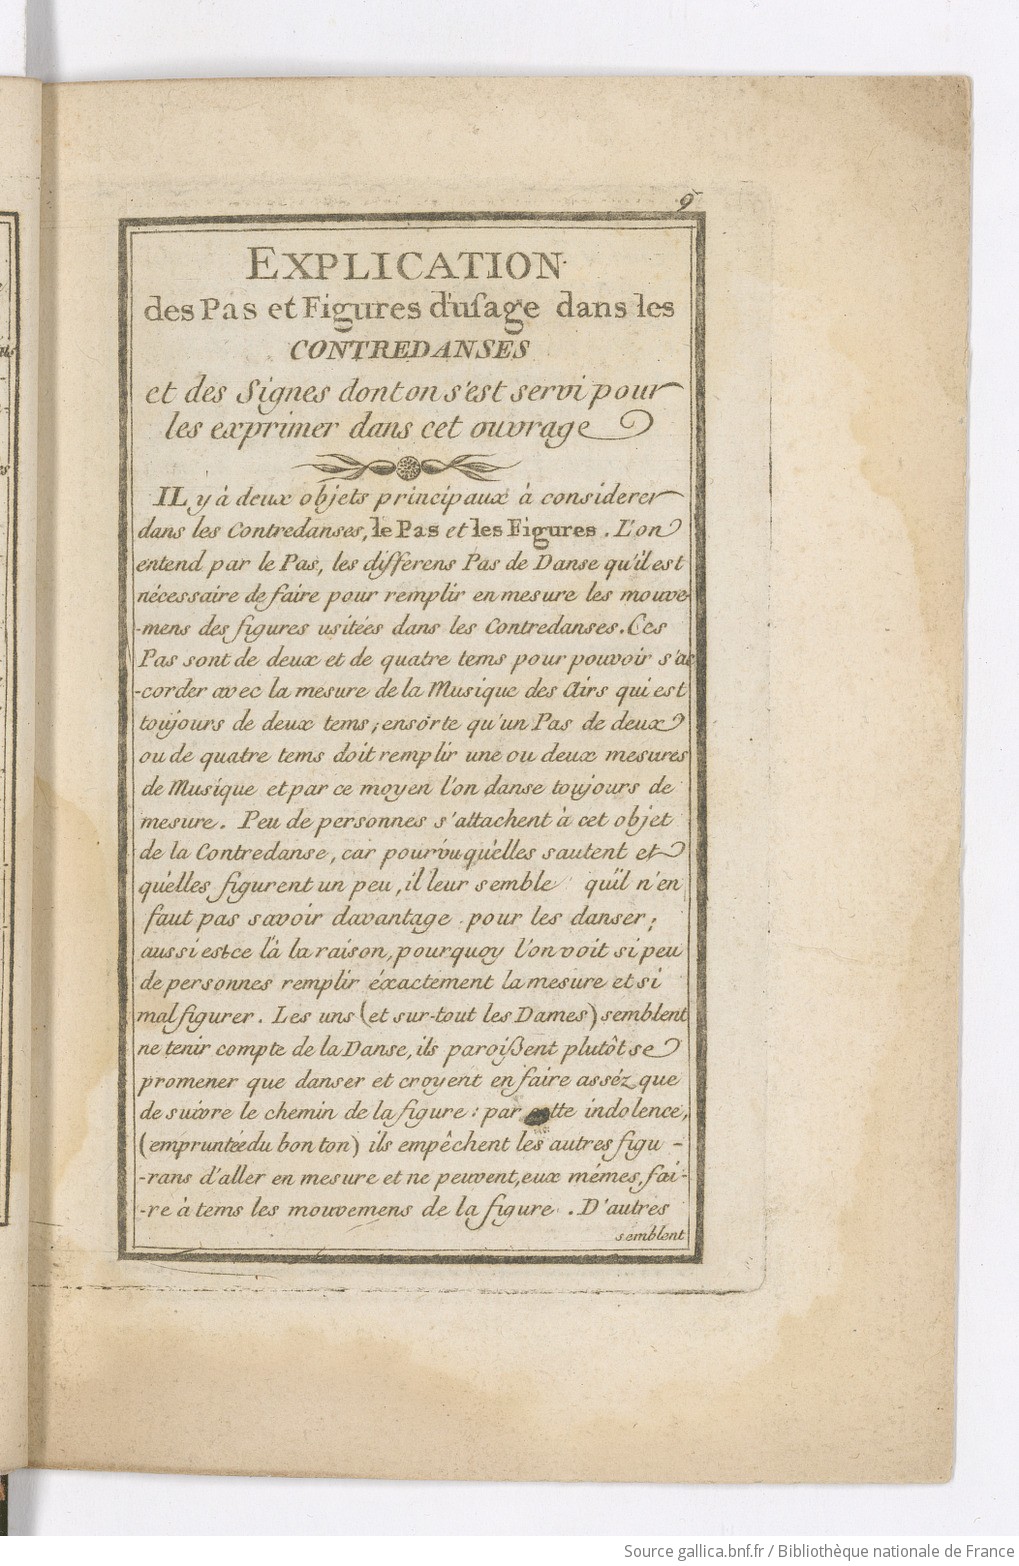 9
EXPLICATION
des Pas et Figures d'usage dans les
CONTREDANSES
et des Signes dont on s'est servi pour
les exprimer dans cet ouvrage
IL y à deux objets principaux à considerer
dans les Contredanses, le Pas et les Figures. L'on
entend par le Pas, les differens Pas de Danse qu'il est
nécessaire de faire pour remplir en mesure les mouve
-mens des figures usitées dans les Contredanses. Ces
Pas sont de deux et de quatre tems pour pouvoir s'ac
-corder avec la mesure de la Musique des Airs qui est
toujours de deux tems; ensorte qu'un Pas de deux
ou de quatre tems doit remplir une ou deux mesures
de Musique et par ce moyen l'on danse toujours de
mesure. Peu de personnes s'attachent à cet objet
de la Contredanse, car pourvu qu'elles sautent et
qu'elles figurent un peu, il leur semble qu'il n'en
faut pas savoir davantage pour les danser;
aussi est-ce là la raison, pourquoy l'on voit si peu
de personnes remplir éxactement la mesure et si
mal figurer. Les uns (et sur-tout les Dames) semblent
ne tenir compte de la Danse, ils paroißent plutôt se
promener que danser et croyent en faire asséz que
de suivre le chemin de la figure: par cette indolence,
(empruntée du bon ton) ils empêchent les autres figu -
-rans d'aller en mesure et ne peuvent, eux mêmes, fai-
-re à tems les mouvemens de la figure. D'autres
semblent
Source gallica.bnf.fr / Bibliothèque nationale de France